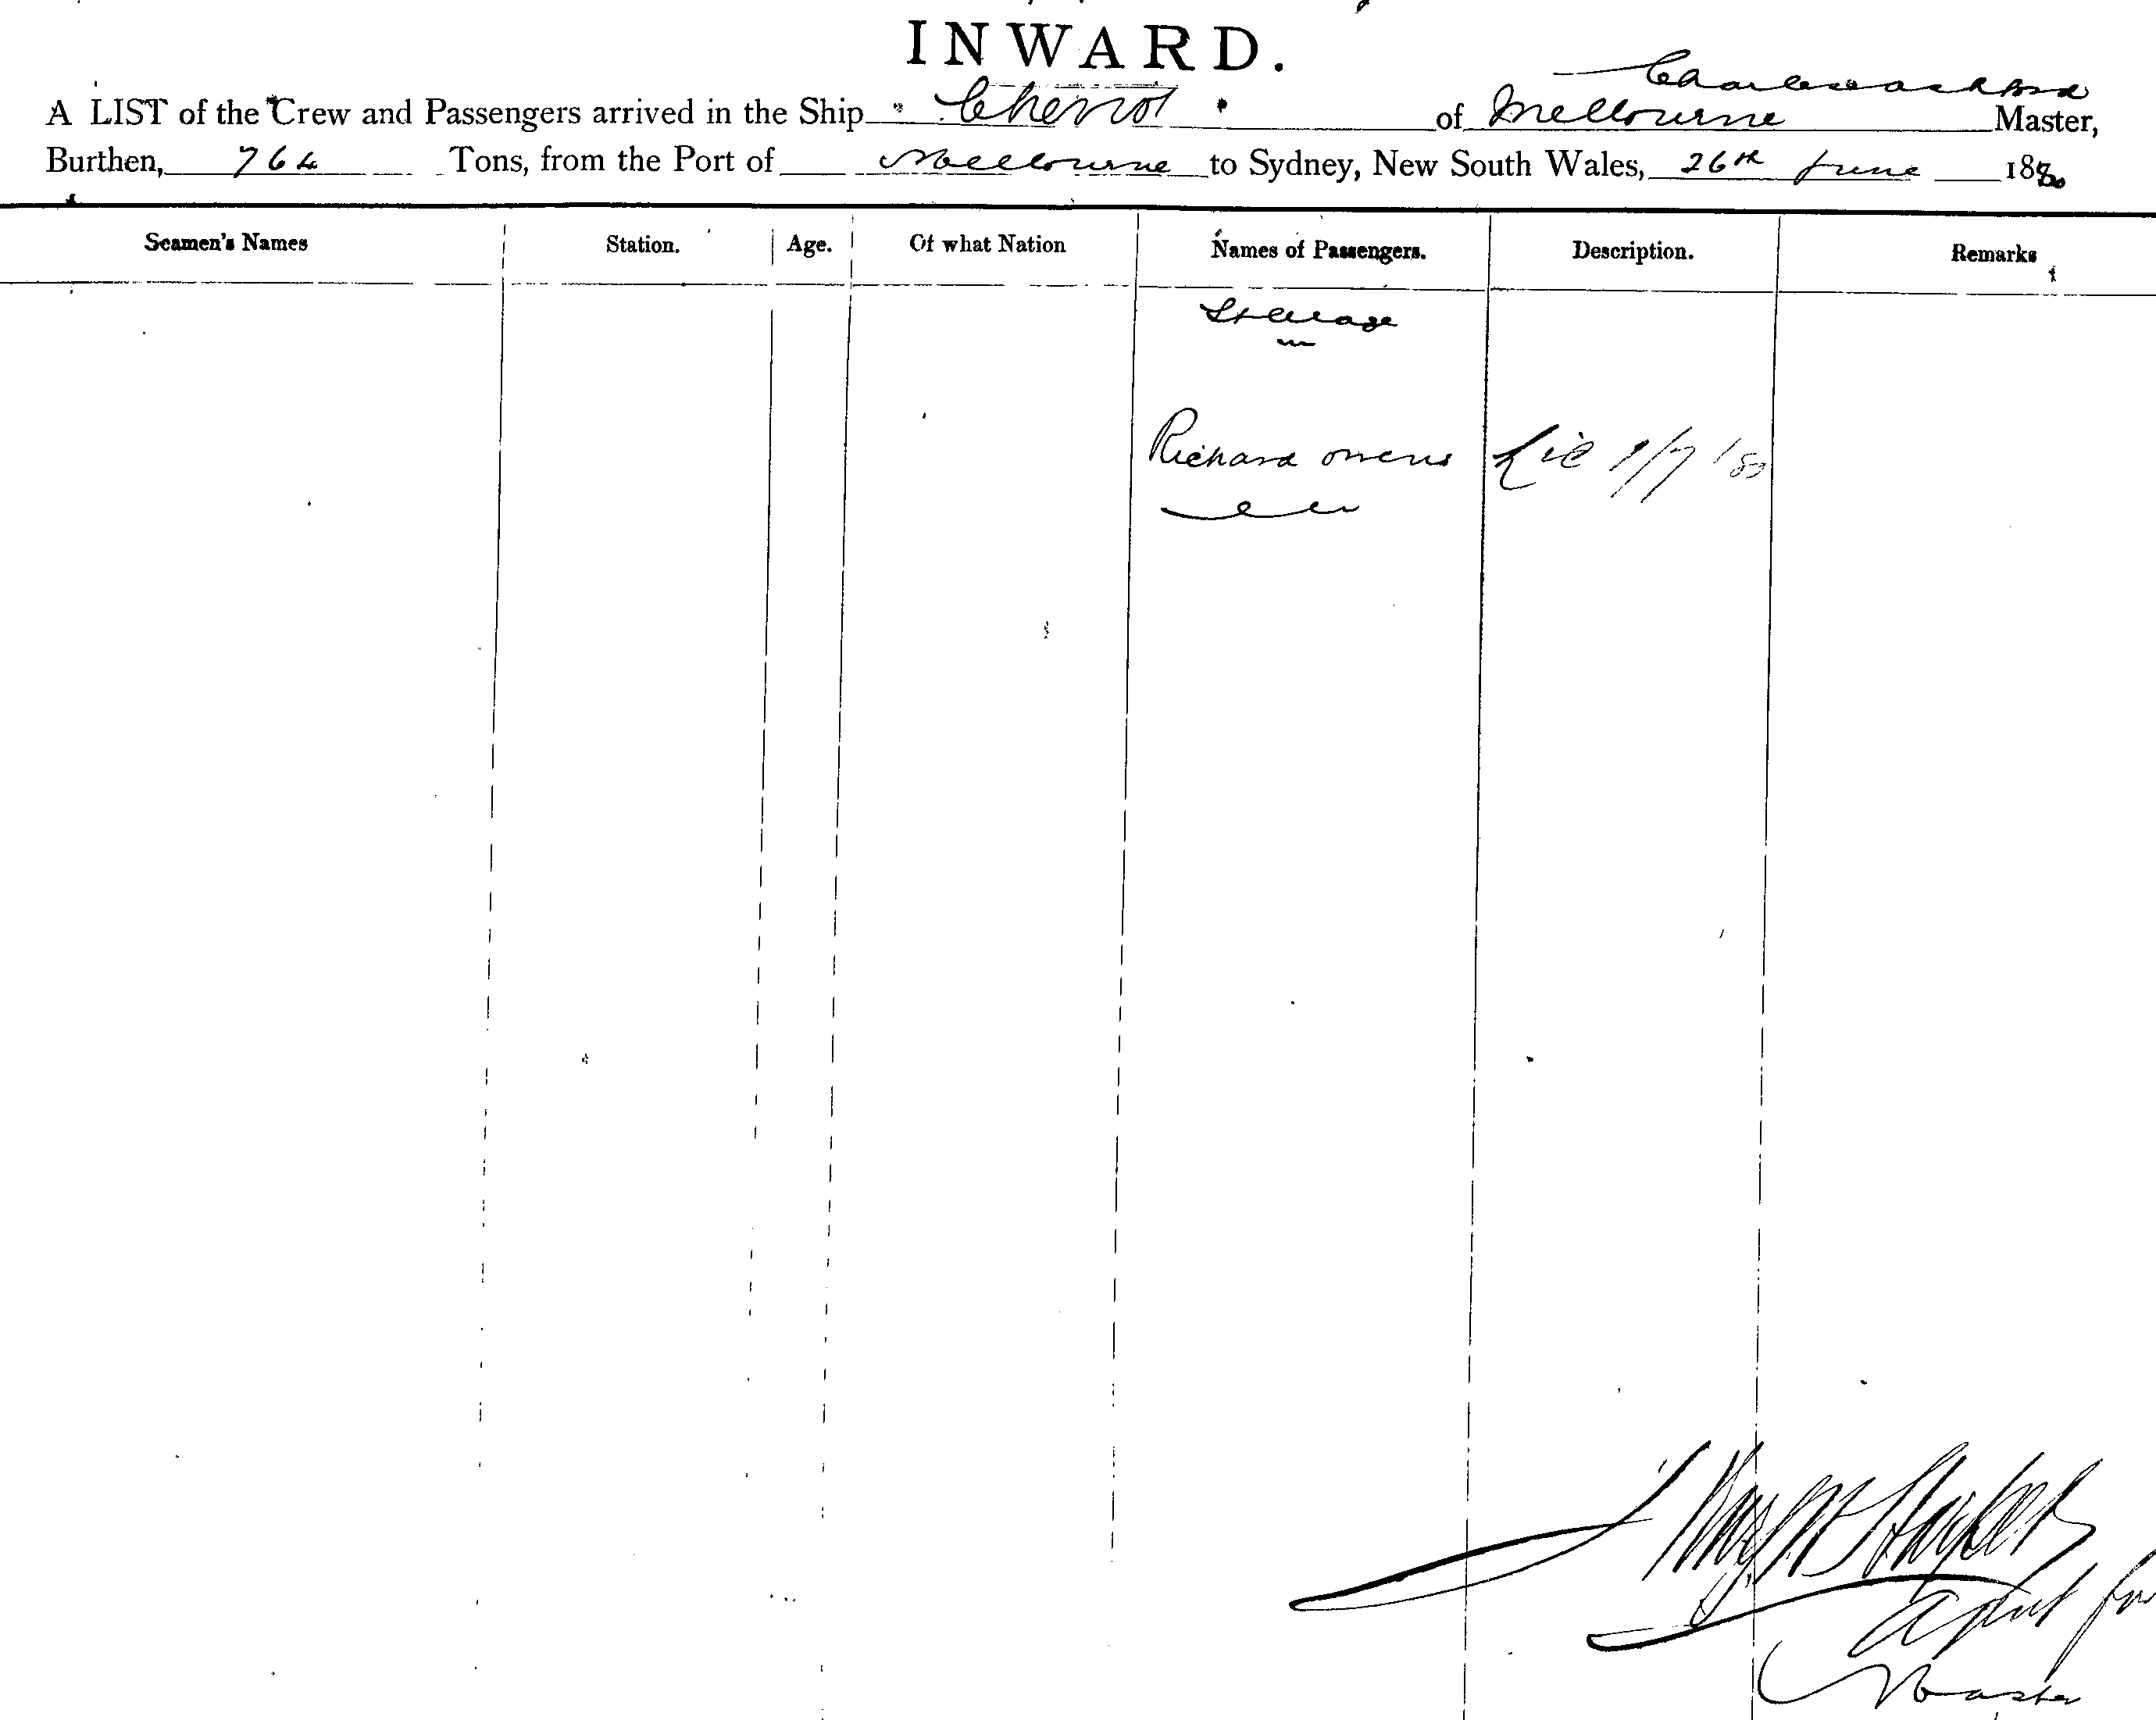 INWARD.
A LIST of the Crew and Passengers arrived in the Ship " Cheviot " of Melbourne Charles Ashford Master,
Burthen, 764 Tons, from the Port of Melbourne to Sydney, New South Wales, 26th June 1880
Seamen's Names Station. Age. Of what Nation Names of Passengers. Description. Remarks
Steerage
Richard Owens 1/7/80
Agent for
Master